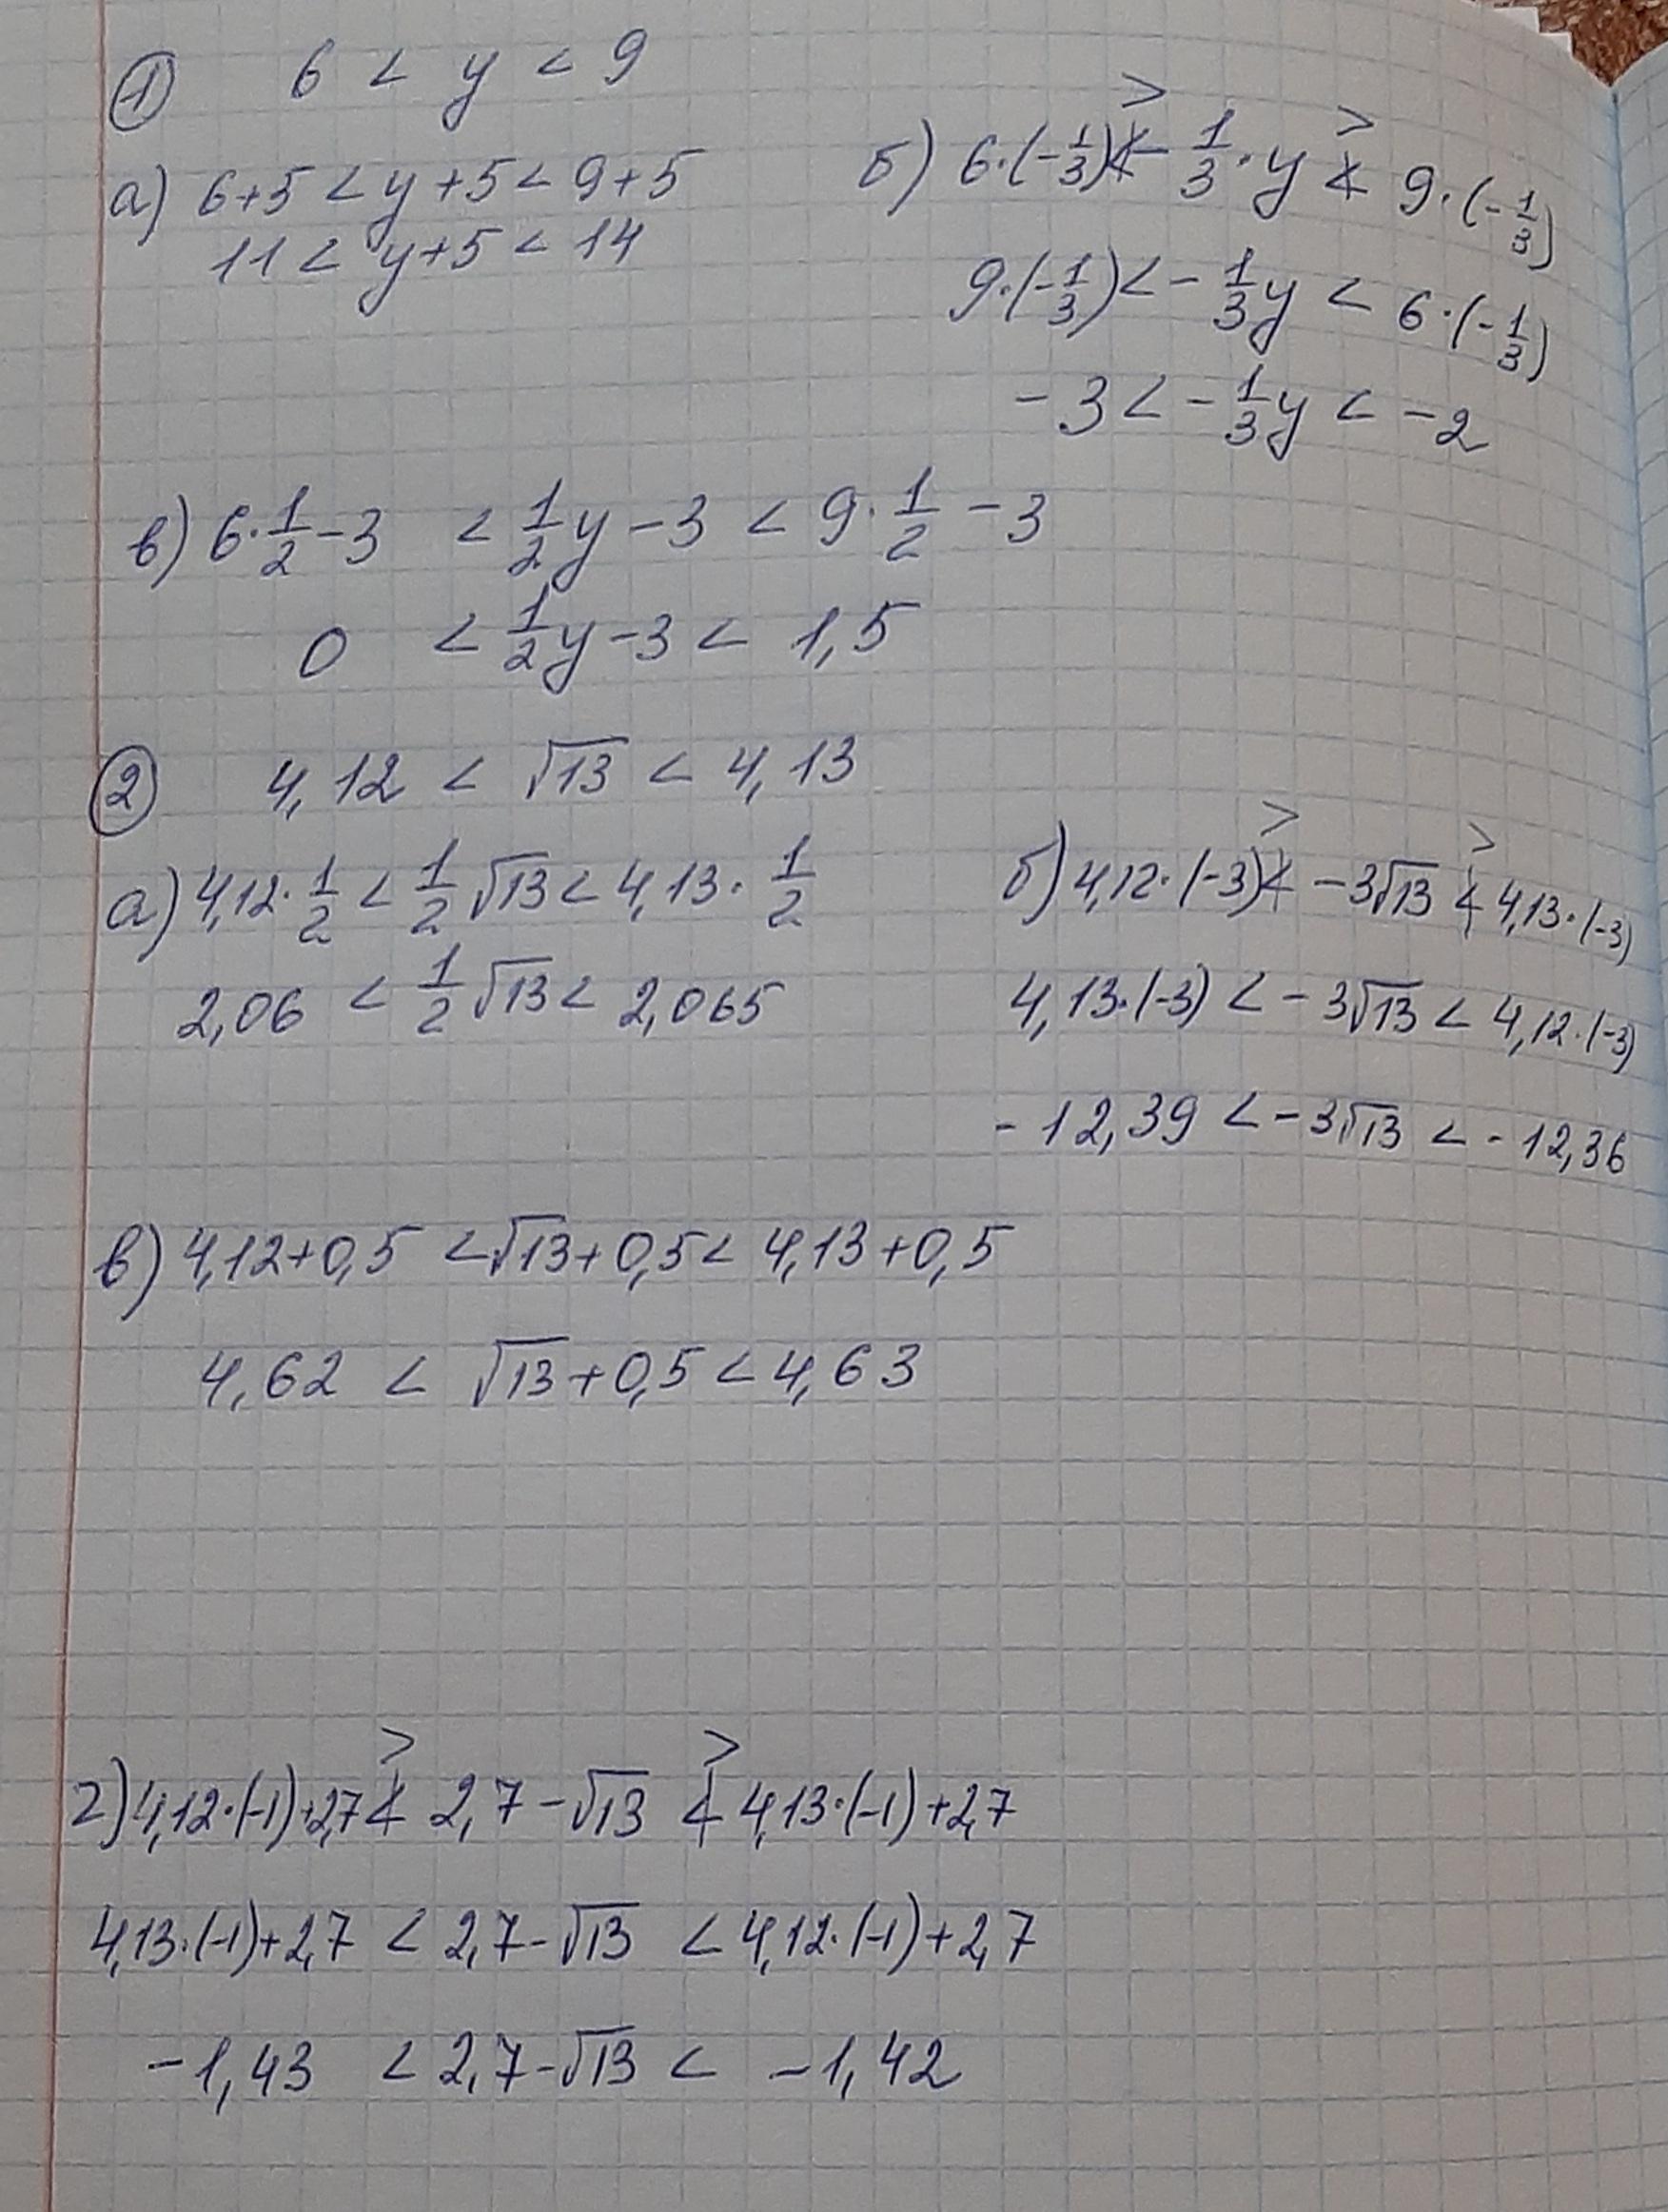 ① 6 < y < 9
а) 6+5 < y+5 < 9+5
11 < y+5 < 14
б) 6·(-1/3) > -1/3·y > 9·(-1/3)
9·(-1/3) < -1/3y < 6·(-1/3)
-3 < -1/3y < -2
в) 6·1/2-3 < 1/2y-3 < 9·1/2-3
0 < 1/2y-3 < 1,5
② 4,12 < √13 < 4,13
а) 4,12·1/2 < 1/2√13 < 4,13·1/2
2,06 < 1/2√13 < 2,065
б) 4,12·(-3) > -3√13 > 4,13·(-3)
4,13·(-3) < -3√13 < 4,12·(-3)
-12,39 < -3√13 < -12,36
в) 4,12+0,5 < √13+0,5 < 4,13+0,5
4,62 < √13+0,5 < 4,63
г) 4,12·(-1)+2,7 > 2,7-√13 > 4,13·(-1)+2,7
4,13·(-1)+2,7 < 2,7-√13 < 4,12·(-1)+2,7
-1,43 < 2,7-√13 < -1,42